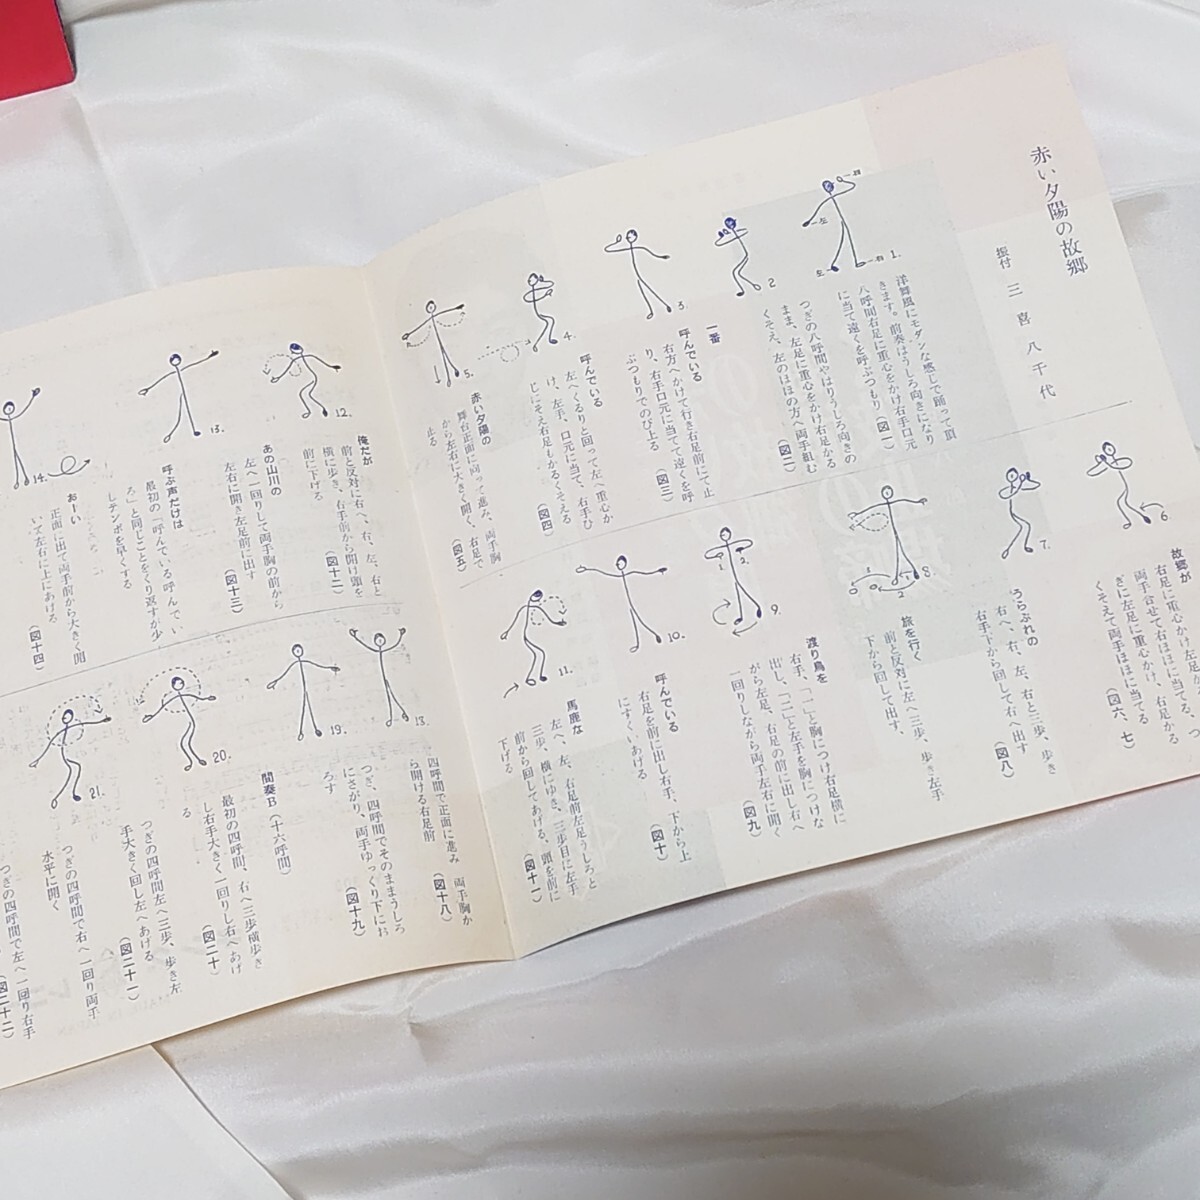 赤い夕陽の故郷
振付 三喜八千代
1.
2
3.
4.
5.
洋舞風にモダンな感じで踊って頂
きます。前奏はうしろ向きになり
八呼間右足に重心をかけ右手口元
に当て遠くを呼ぶつもり(図一)
つぎの八呼間やはりうしろ向きの
まま、左足に重心をかけ右足かる
くそえ、左のほほの方へ両手組む
(図二)
一番
呼んでいる
右方へかけて行き右足前にて止
り、右手口元に当て遠くを呼
ぶつもりでのび上る
(図三)
呼んでいる
左へくるりと回って左へ重心か
け、左手、口元に当て、右手ひ
じにそえ右足もかるくそえる
(図四)
赤い夕陽の
舞台正面に向って進み、両手胸
から左右に大きく開く、右足で
止る
(図五)
6
7.
8.
9.
10.
11.
故郷が
右足に重心かけ左足か
両手合せて右ほほに当てる、つ
ぎに左足に重心かけ、右足かる
くそえて両手ほほに当てる
(図六、七)
うらぶれの
右へ、右、左、右と三歩、歩き
右手下から回して右へ出す
(図八)
旅を行く
前と反対に左へ三歩、歩き左手
下から回して出す、
渡り鳥を
右手、「一」と胸につけ右足横に
出し、「二」と左手を胸につけな
がら左足、右足の前に出し右へ
一回りしながら両手左右に開く
(図九)
呼んでいる
右足を前に出し右手、下から上
にすくいあげる
(図十)
馬鹿な
左へ、左、右足前左足うしろと
三歩、横にゆき、三歩目に左手
前から回してあげる、頭を前に
下げる
(図十一)
12.
13.
14.
俺だが
前と反対に右へ、右、左、右と
横に歩き、右手前から開け頭を
前に下げる
(図十二)
あの山川の
左へ一回りして両手胸の前から
左右に開き左足前に出す
(図十三)
呼ぶ声だけは
最初の「呼んでいる呼んでい
る」と同じことをくり返すが少
しテンポを早くする
おーい
正面に出て両手前から大きく開
いて左右に上にあげる
(図十四)
18.
19.
20.
21.
四呼間で正面に進み 両手胸か
ら開ける右足前
(図十八)
つぎ、四呼間でそのままうしろ
にさがり、両手ゆっくり下にお
ろす
(図十九)
間奏B(十六呼間)
最初の四呼間、右へ三歩横歩き
し右手大きく一回りし右へあげ
る
(図二十)
つぎの四呼間左へ三歩、歩き左
手大きく回し左へあげる
(図二十一)
つぎの四呼間で右へ一回り両手
水平に開く
つぎの四呼間で左へ一回り右手
(図二十二)